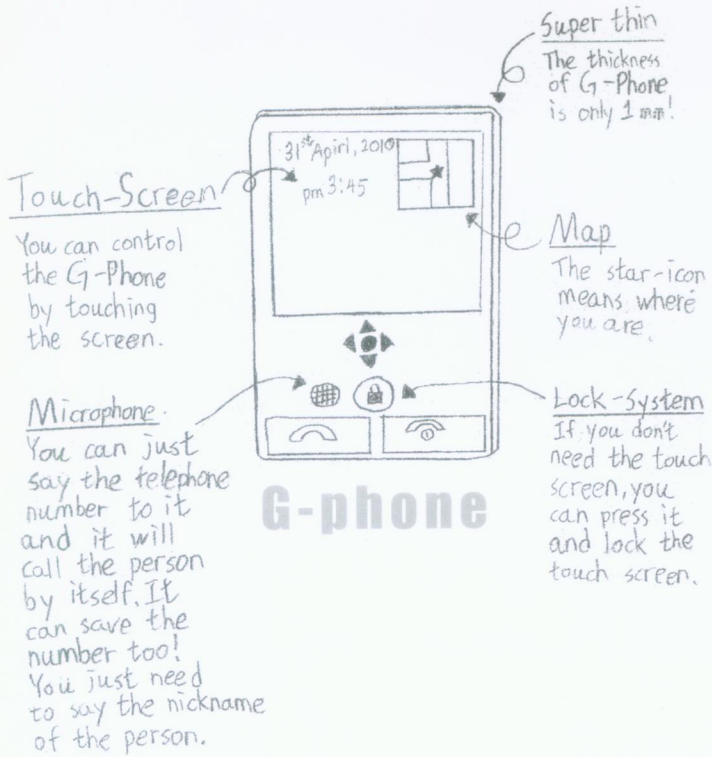 Super thin
The thickness
of G-Phone
is only 1 mm!
31st Apirl, 2010
pm 3:45
Touch-Screen
You can control
the G-Phone
by touching
the screen.
Map
The star-icon
means where
you are.
Microphone.
You can just
say the telephone
number to it
and it will
call the person
by itself. It
can save the
number too!
You just need
to say the nickname
of the person.
Lock-System
If you don't
need the touch
screen, you
can press it
and lock the
touch screen.
G-phone